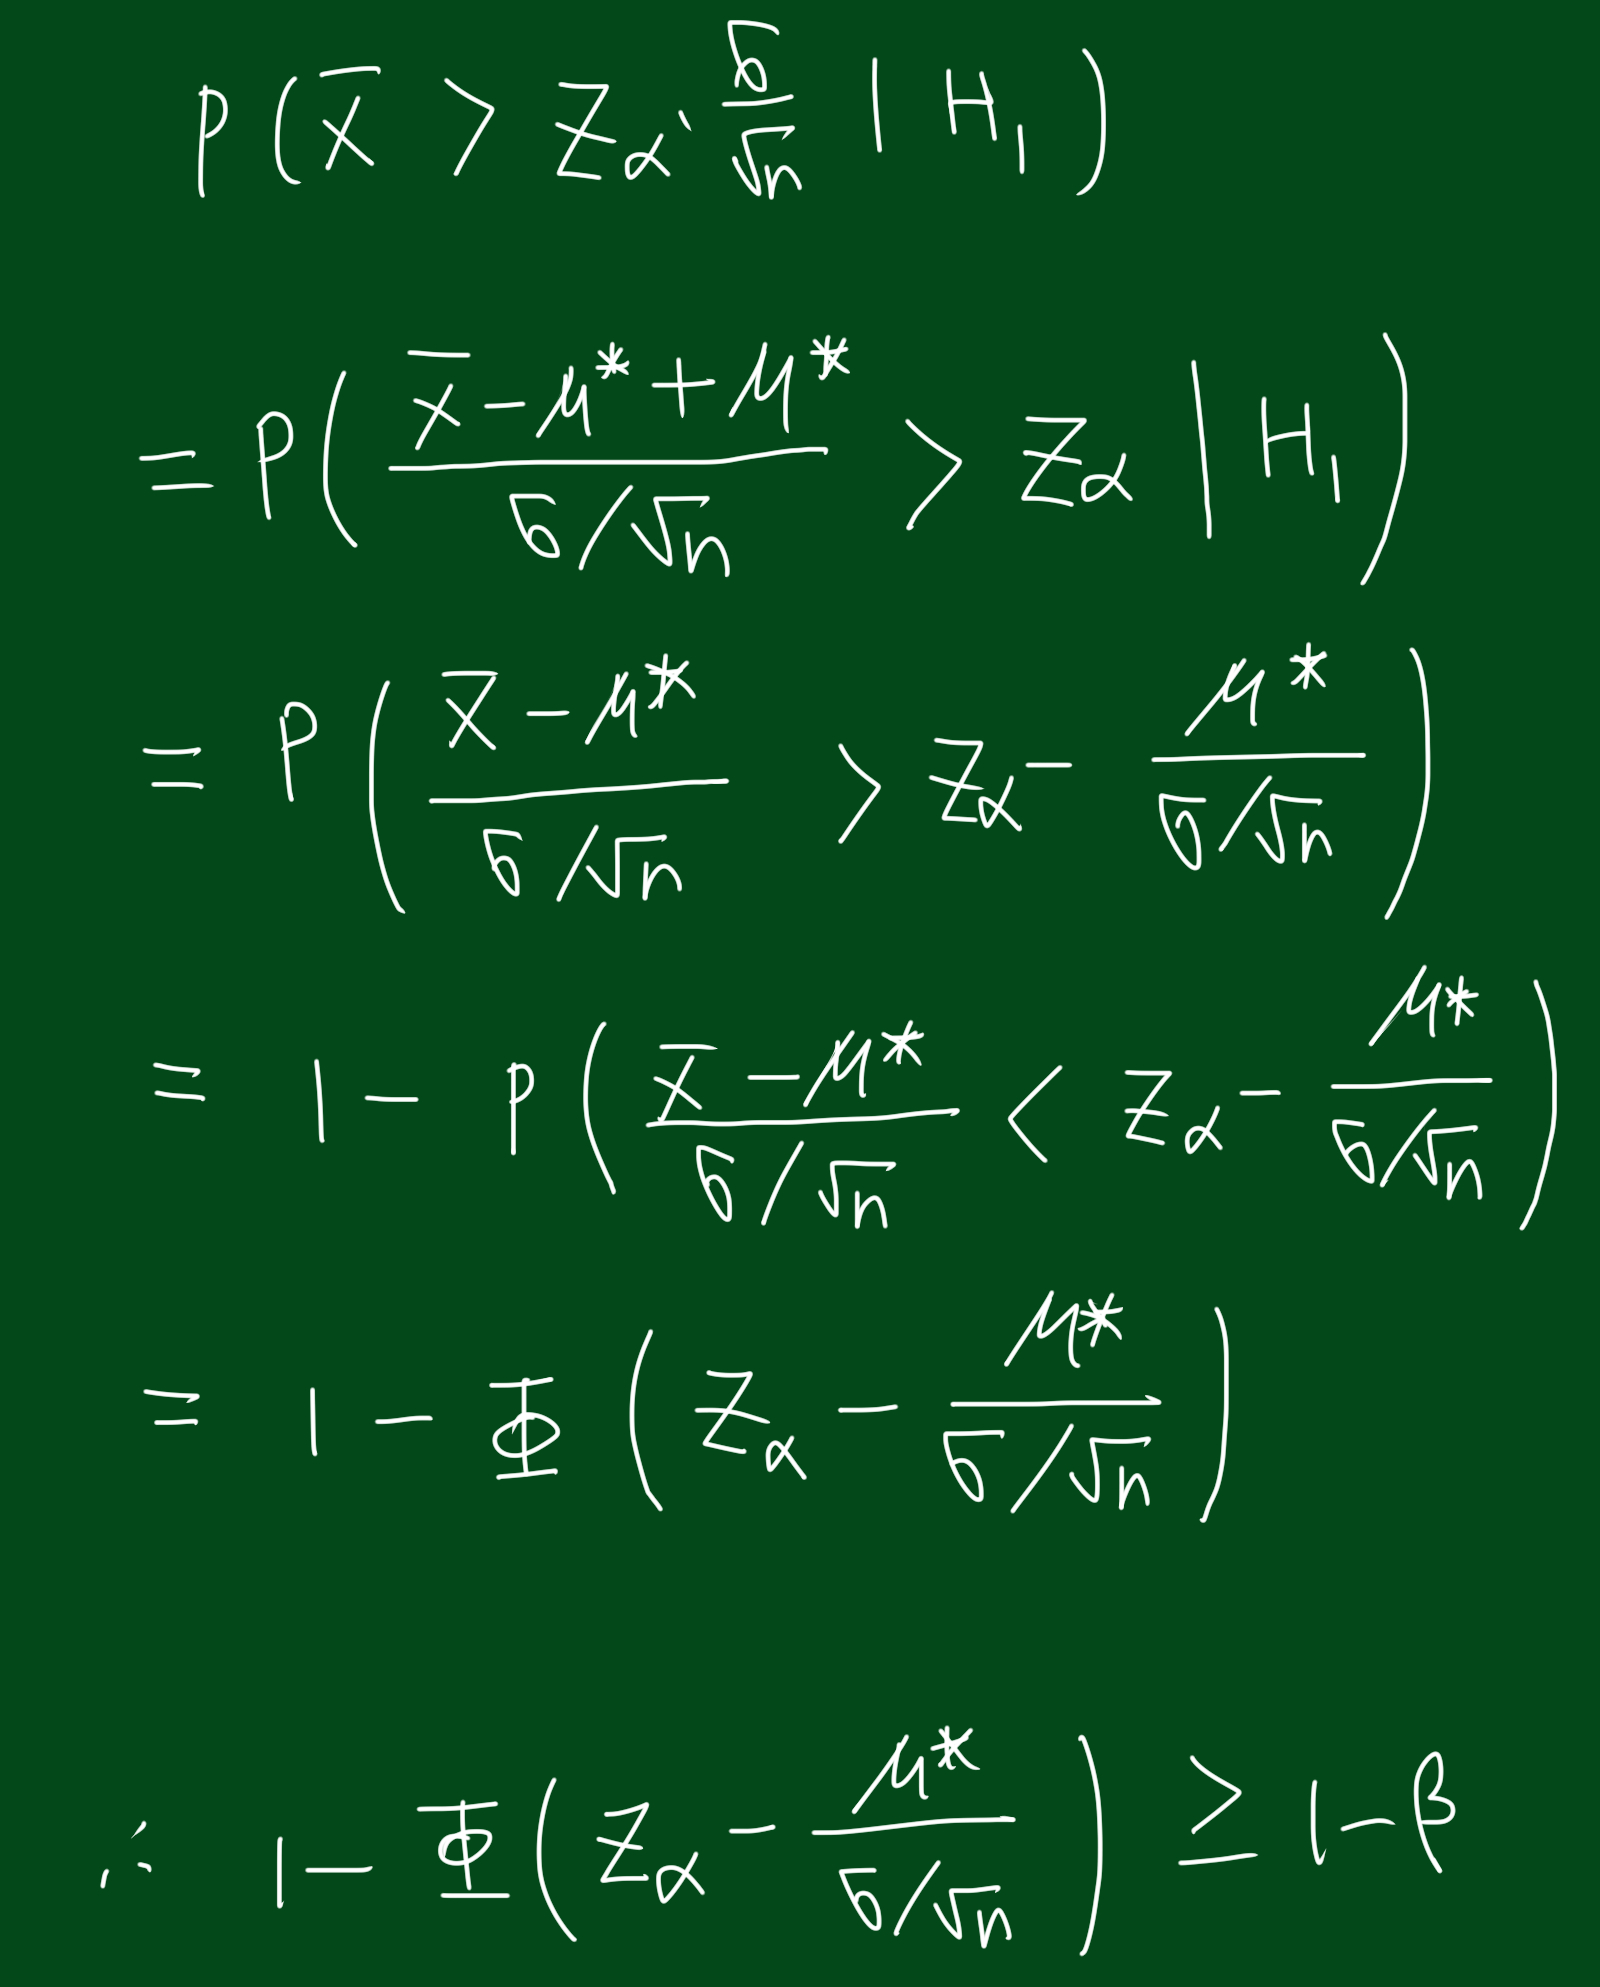 P(X̄ > Z_α · σ/√n | H₁)
= P((x̄ - μ* + μ*)/(σ/√n) > Z_α | H₁)
= P((x̄ - μ*)/(σ/√n) > Z_α - μ*/(σ/√n))
= 1 - P((x̄ - μ*)/(σ/√n) < Z_α - μ*/(σ/√n))
= 1 - Φ(Z_α - μ*/(σ/√n))
∴ 1 - Φ(Z_α - μ*/(σ/√n)) ≥ 1 - β